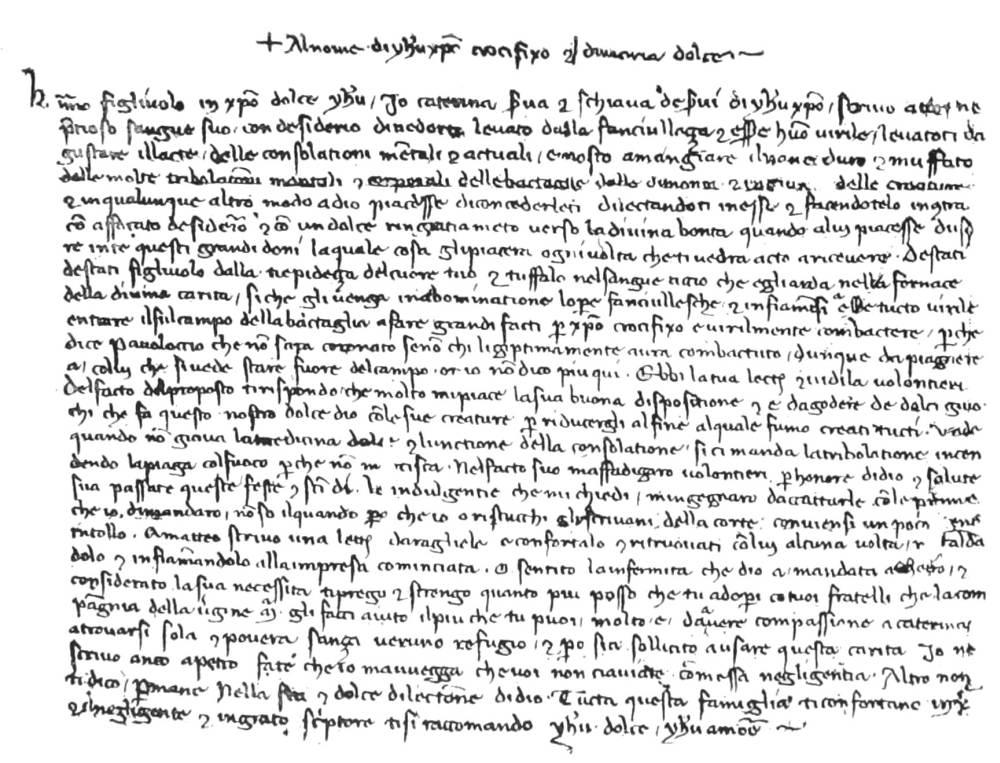 + Al nome di yhu xpo crocifixo ⁊ di maria dolce ~
h. mo figliuolo in xpo dolce yhu / Io caterina s̄ua ⁊ schiava de s̄ui di yhu xpo, scrivo a te nel
p̄tioso sangue suo, con desiderio di vederti levato dalla fanciullaza ⁊ ess̄e huō virile / levatoti da
gustare illacte, delle consolationi mentali ⁊ actuali, e posto a mangiare il pane duro ⁊ muffato
delle molte tribolationi mentali ⁊ corporali delle battaglie delle dimonia ⁊ ingiur. delle creature
⁊ in qualunque altro modo a dio piacesse di concedertelo dilectandoti in esse ⁊ facendotelo incontra
cō affocato desiderō ⁊ cō un dolce ringratiamēto verso la divina bonta quando a lui piacesse dusa
re inte questi grandi doni laquale cosa gli piacera ogni volta che ti vedra acto a ricevere. Destati
destati figliuolo dalla tiepideza del cuore tuo, ⁊ tuffalo nel sangue accio che egli arda nella fornace
della divina carita, si che gli venga in abominatione lopere fanciullesche, ⁊ infiammisi a essere tucto virile
entrare in sul campo della battaglia a fare grandi facti p xpo crocifixo e virilmente combactere, p̄ che
dice pauoloccio che nō sara coronato senō chi ligiptimamente avra combactuto, dunque da piagnere
a, colui che si vede stare fuore del campo. or io nō dico piu qui. Ebbi la tua lecta ⁊ vidila volontieri
Del facto del proposto ti rispondo, che molto mi piace la sua buona dispositione ⁊ e da godere de dolci giuo
chi che fa questo nostro dolce dio cō le sue creature p riducergli al fine al quale fumo creati tucti. unde
quando nō giova la medicina dolce ⁊ lunctione della consolatione, sici manda la tribolatione incen
dendo la piaga col fuoco p̄ che nō marcisca. Nel facto suo maffadigaro volontieri p honore di dio ⁊ salute
sua passate queste feste ⁊ Le indulgentie che mi chiedi, mingegnaro daccattarle cō le prime
che io dimandaro, nō so il quando p̄o che io o ristucchi gli scrivani della corte. conviensi un poco
A matteo scrivo una lecta daragliele e confortalo ⁊ ritruovati cō lui alcuna volta, riscalda
dolo ⁊ infiamādolo alla impresa cominciata. O sentito la infermita che dio a, mandata a ⁊
considerato la sua necessita ti prego ⁊ strengo quanto piu posso che tu adopri co tuoi fratelli che la com
pagnia della v̄gine Ma gli facci aiuto il piu che tu puoi, molto, e, davere compassione a caterina
a trovarsi sola ⁊ povera sanza veruno refugio, ⁊ p̄o sia sollicito a usare questa carita Io ne
scrivo anco a petro fate che io mavvegga che voi non ciaviate cōmessa negligentia. Altro non
ti dico, p̄mane nella sc̄a ⁊ dolce dilectione di dio. Tucta questa famiglia ti confortano in xpo
⁊ el negligente ⁊ ingrato scriptore ti si raccomando yhu dolce, yhu amore ~